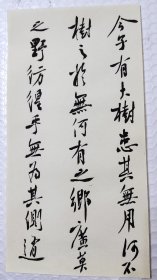 今子有大樹患其無用何不
樹之於無何有之鄉廣莫
之野彷徨乎無為其側逍